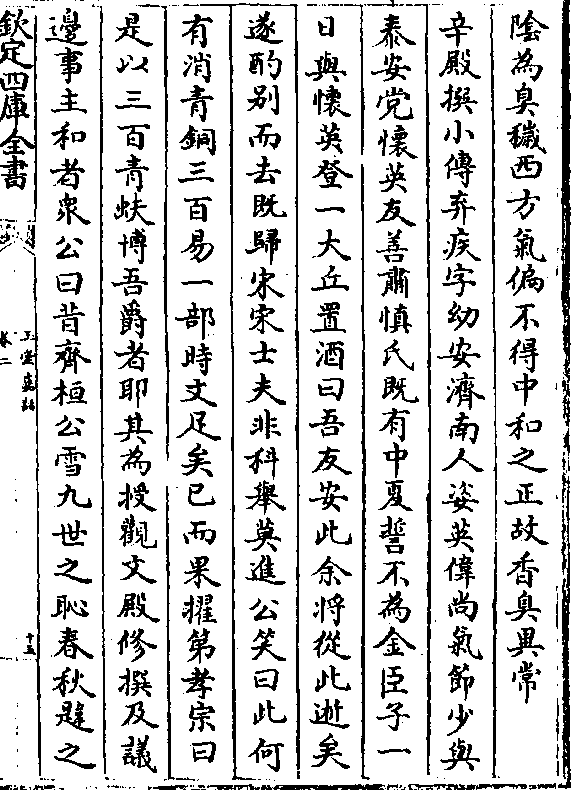 陰為臭穢西方氣偏不得中和之正故香臭異常
辛殿撰小傳弃疾字幼安濟南人姿英偉尚氣節少與
泰安党懷英友善肅慎氏既有中夏誓不為金臣子一
日與懷英登一大丘置酒曰吾友安此余将從此逝矣
遂酌别而去既歸宋宋士夫非科舉莫進公笑曰此何
有消青銅三百易一部時文足矣已而果擢第孝宗曰
是以三百青蚨博吾爵者耶其為授觀文殿修撰及議
邊事主和者衆公曰昔齊桓公雪九世之恥春秋韙之
欽定四庫全書
卷二
十五